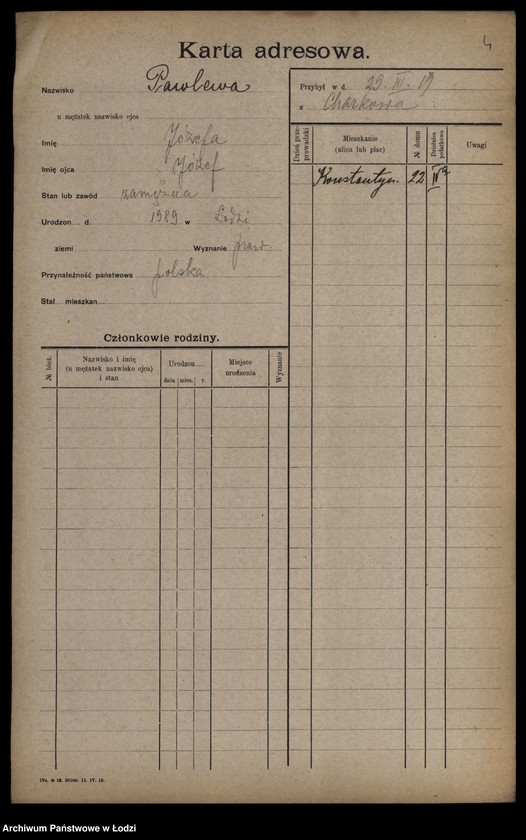 4
Karta adresowa.
Nazwisko Pawlewa
u mężatek nazwisko ojca
Imię Józefa
Imię ojca Józef
Stan lub zawód zamężna
Urodzon d. 1989 w Łodzi
ziemi Wyznanie praw.
Przynależność państwowa polska
Stał mieszkan
Przybył w d. 29. III. 19
z Charkowa
Dzień prze-prowadzki
Mieszkanie
(ulica lub plac)
№ domu
Dzielnica podatkowa
Uwagi
Konstantyn. 22 IV a
Członkowie rodziny.
№ bież.
Nazwisko i imię
(u mężatek nazwisko ojca)
i stan
Urodzon
dnia mies. r.
Miejsce
urodzenia
Wyznanie
Archiwum Państwowe w Łodzi